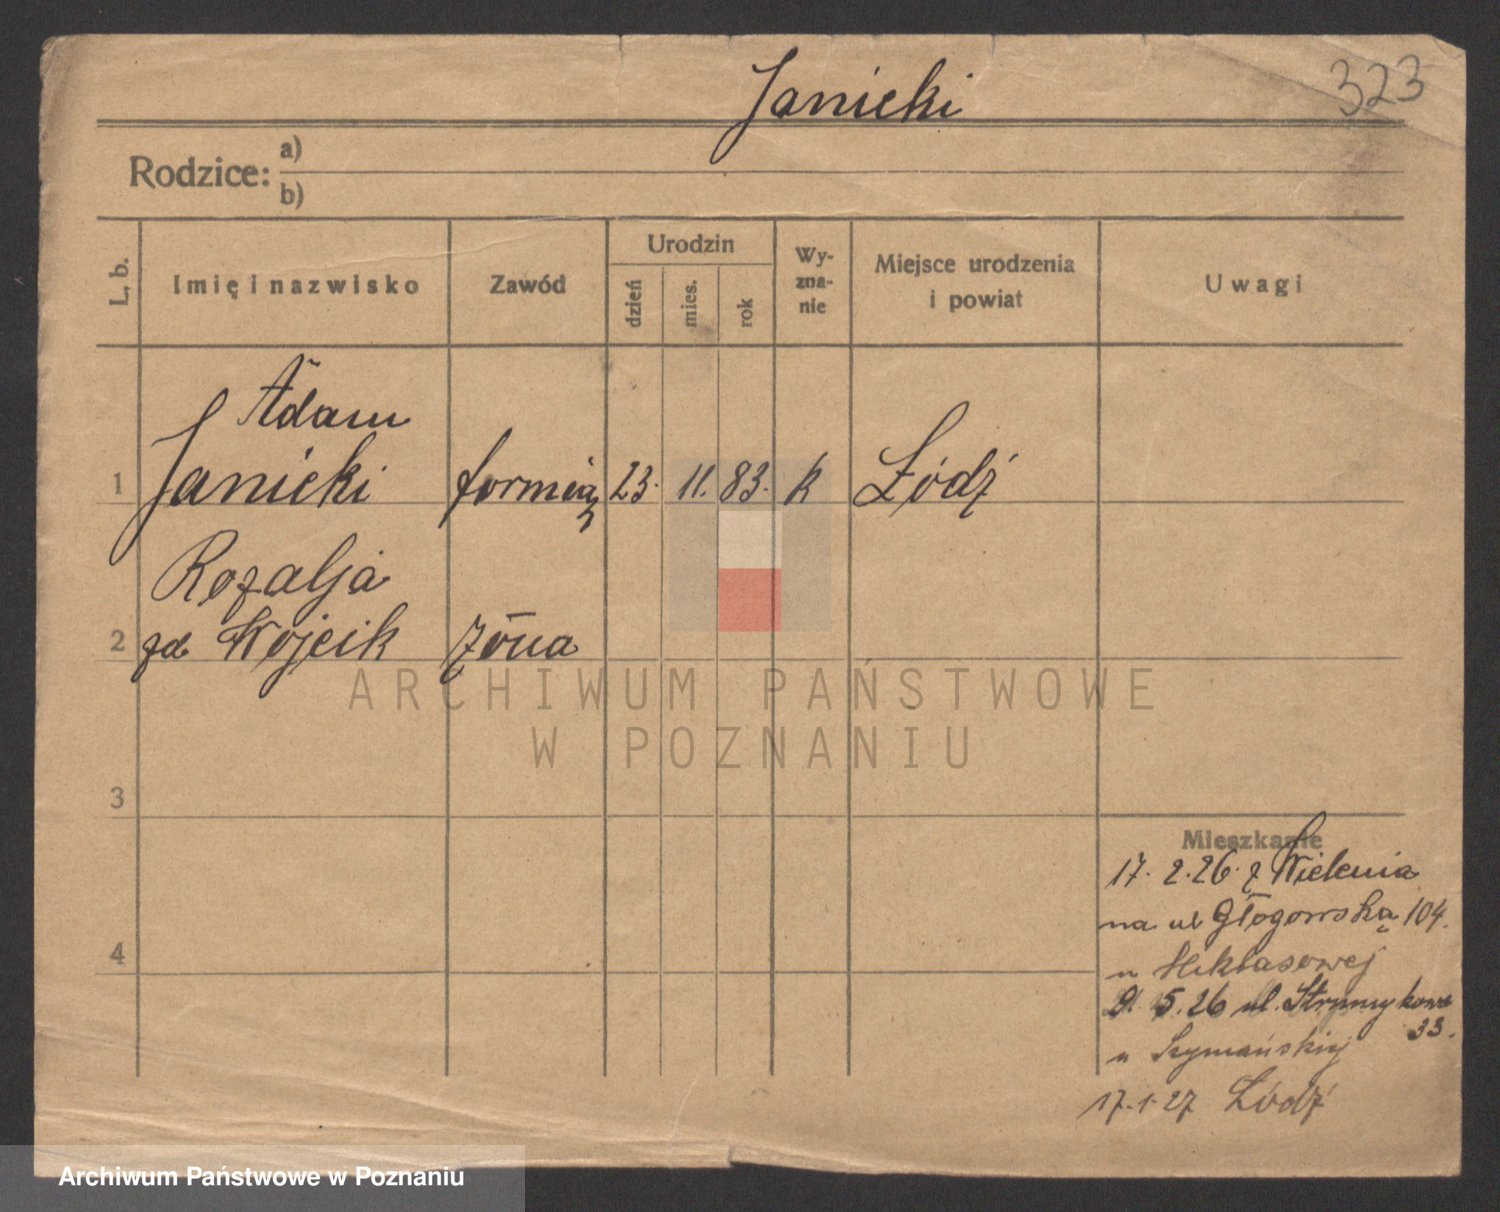 323
Janicki
Rodzice: a)
b)
L. b.
Imię i nazwisko
Zawód
Urodzin
dzień
mies.
rok
Wy-
zna-
nie
Miejsce urodzenia
i powiat
Uwagi
Adam
1 Janicki 23. 11. 83. k Łódź
Rozalja
2 zd Wojcik żona
3
4
Mieszkanie
17. 2. 26. z Wielenia
na ul Głogowską 104.
u
5. 26 ul. Strumykowa
33.
u Szymańskiej
17.1.27 Łódź
ARCHIWUM PAŃSTWOWE
W POZNANIU
Archiwum Państwowe w Poznaniu